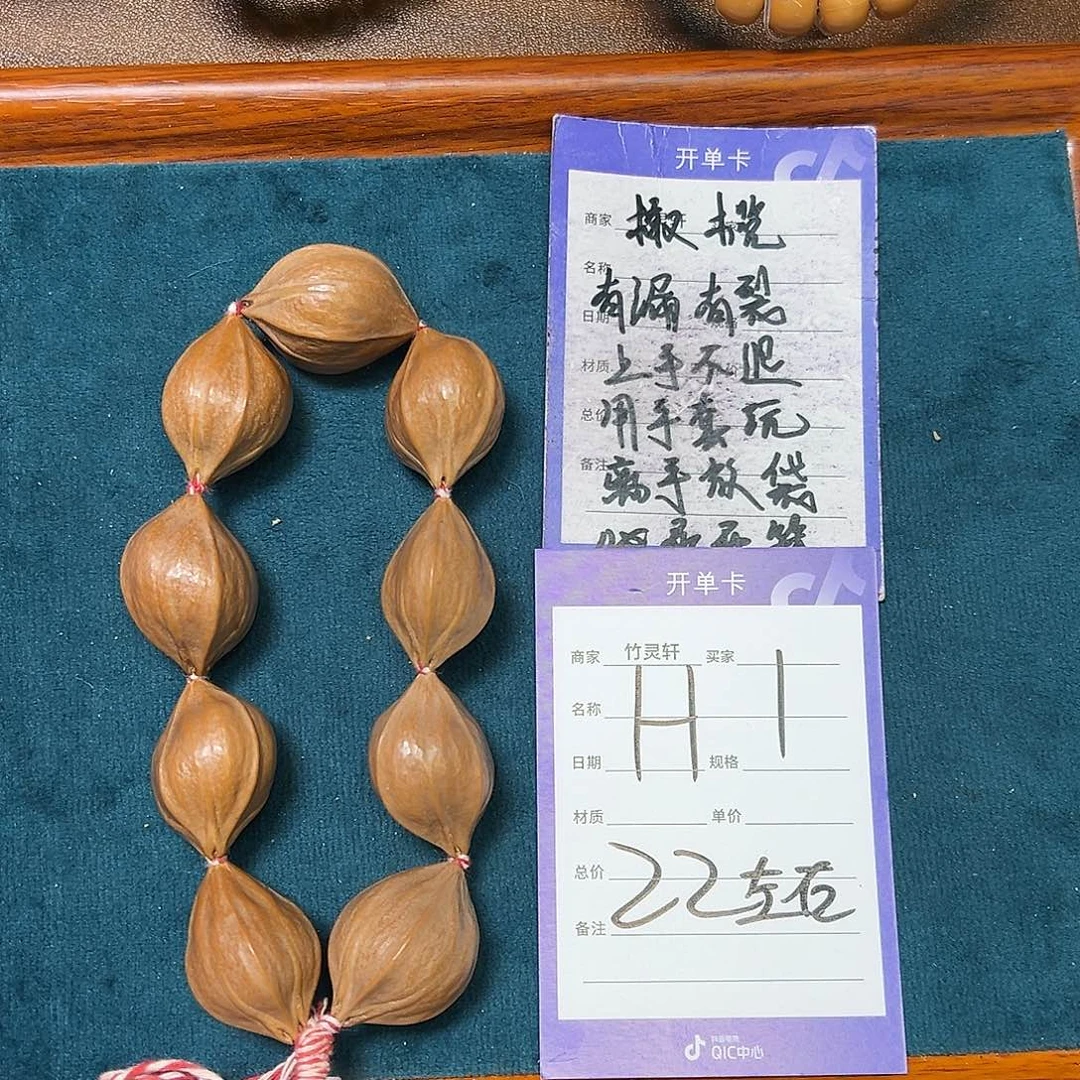 开单卡
商家 橄榄
名称
有漏有裂
日期
材质 上手不退
总价 用手套玩
备注 离手放袋
开单卡
商家 竹灵轩 买家
名称 H 1
日期 规格
材质 单价
总价 22左右
备注
QIC中心